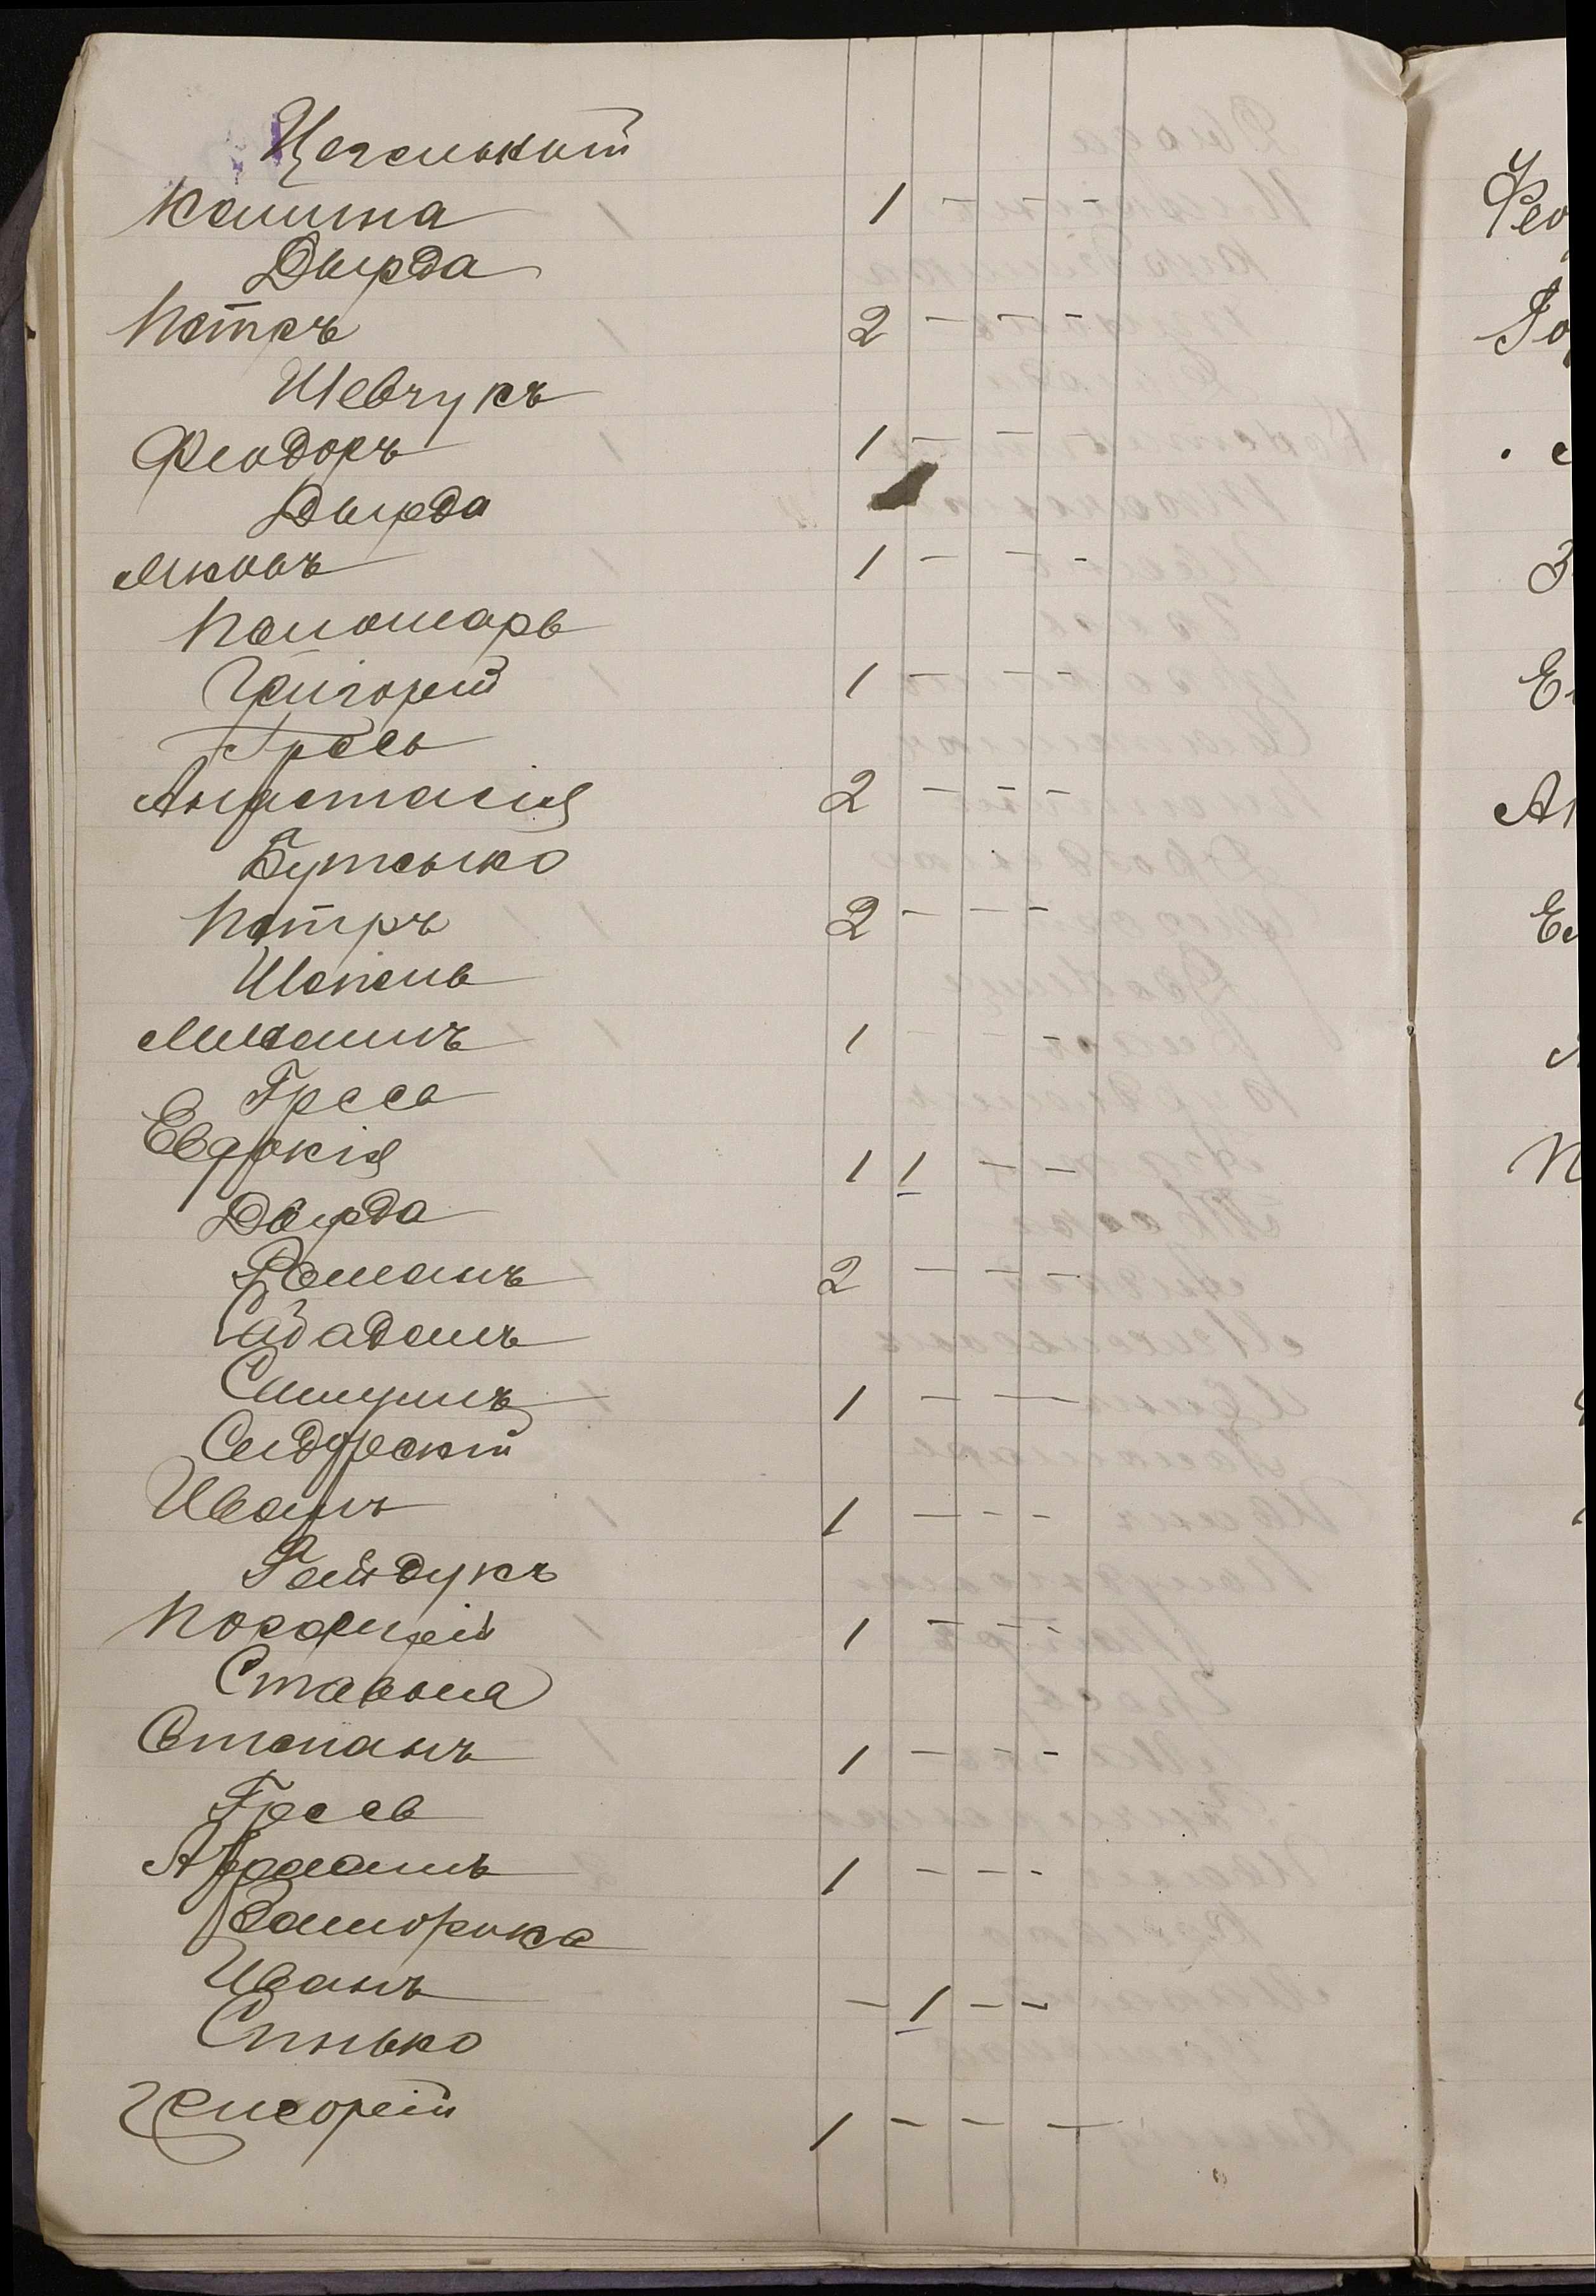 Цегельный
Калина 1 - - -
Дырда
Петръ 2 - - -
Шевчукъ
Феодоръ 1 - - -
Дырда
Яковъ 1 - - -
Пономарь
Григорій 1 - - -
Гресь
Анастасія 2 - - -
Бутенко
Петръ 2 - - -
Шепель
Михаилъ 1 - - -
Гресь
Евдокія 1 1 - -
Дырда
Романъ 2 - - -
Сабаданъ
Самуилъ 1 - - -
Сидорскій
Иванъ 1 - - -
Гайдукъ
Порфирій 1 - - -
Ставына
Степанъ 1 - - -
Гресь
Абрамъ 1 - - -
Заторока
Иванъ - 1 - -
Сенько
Григорій 1 - - -